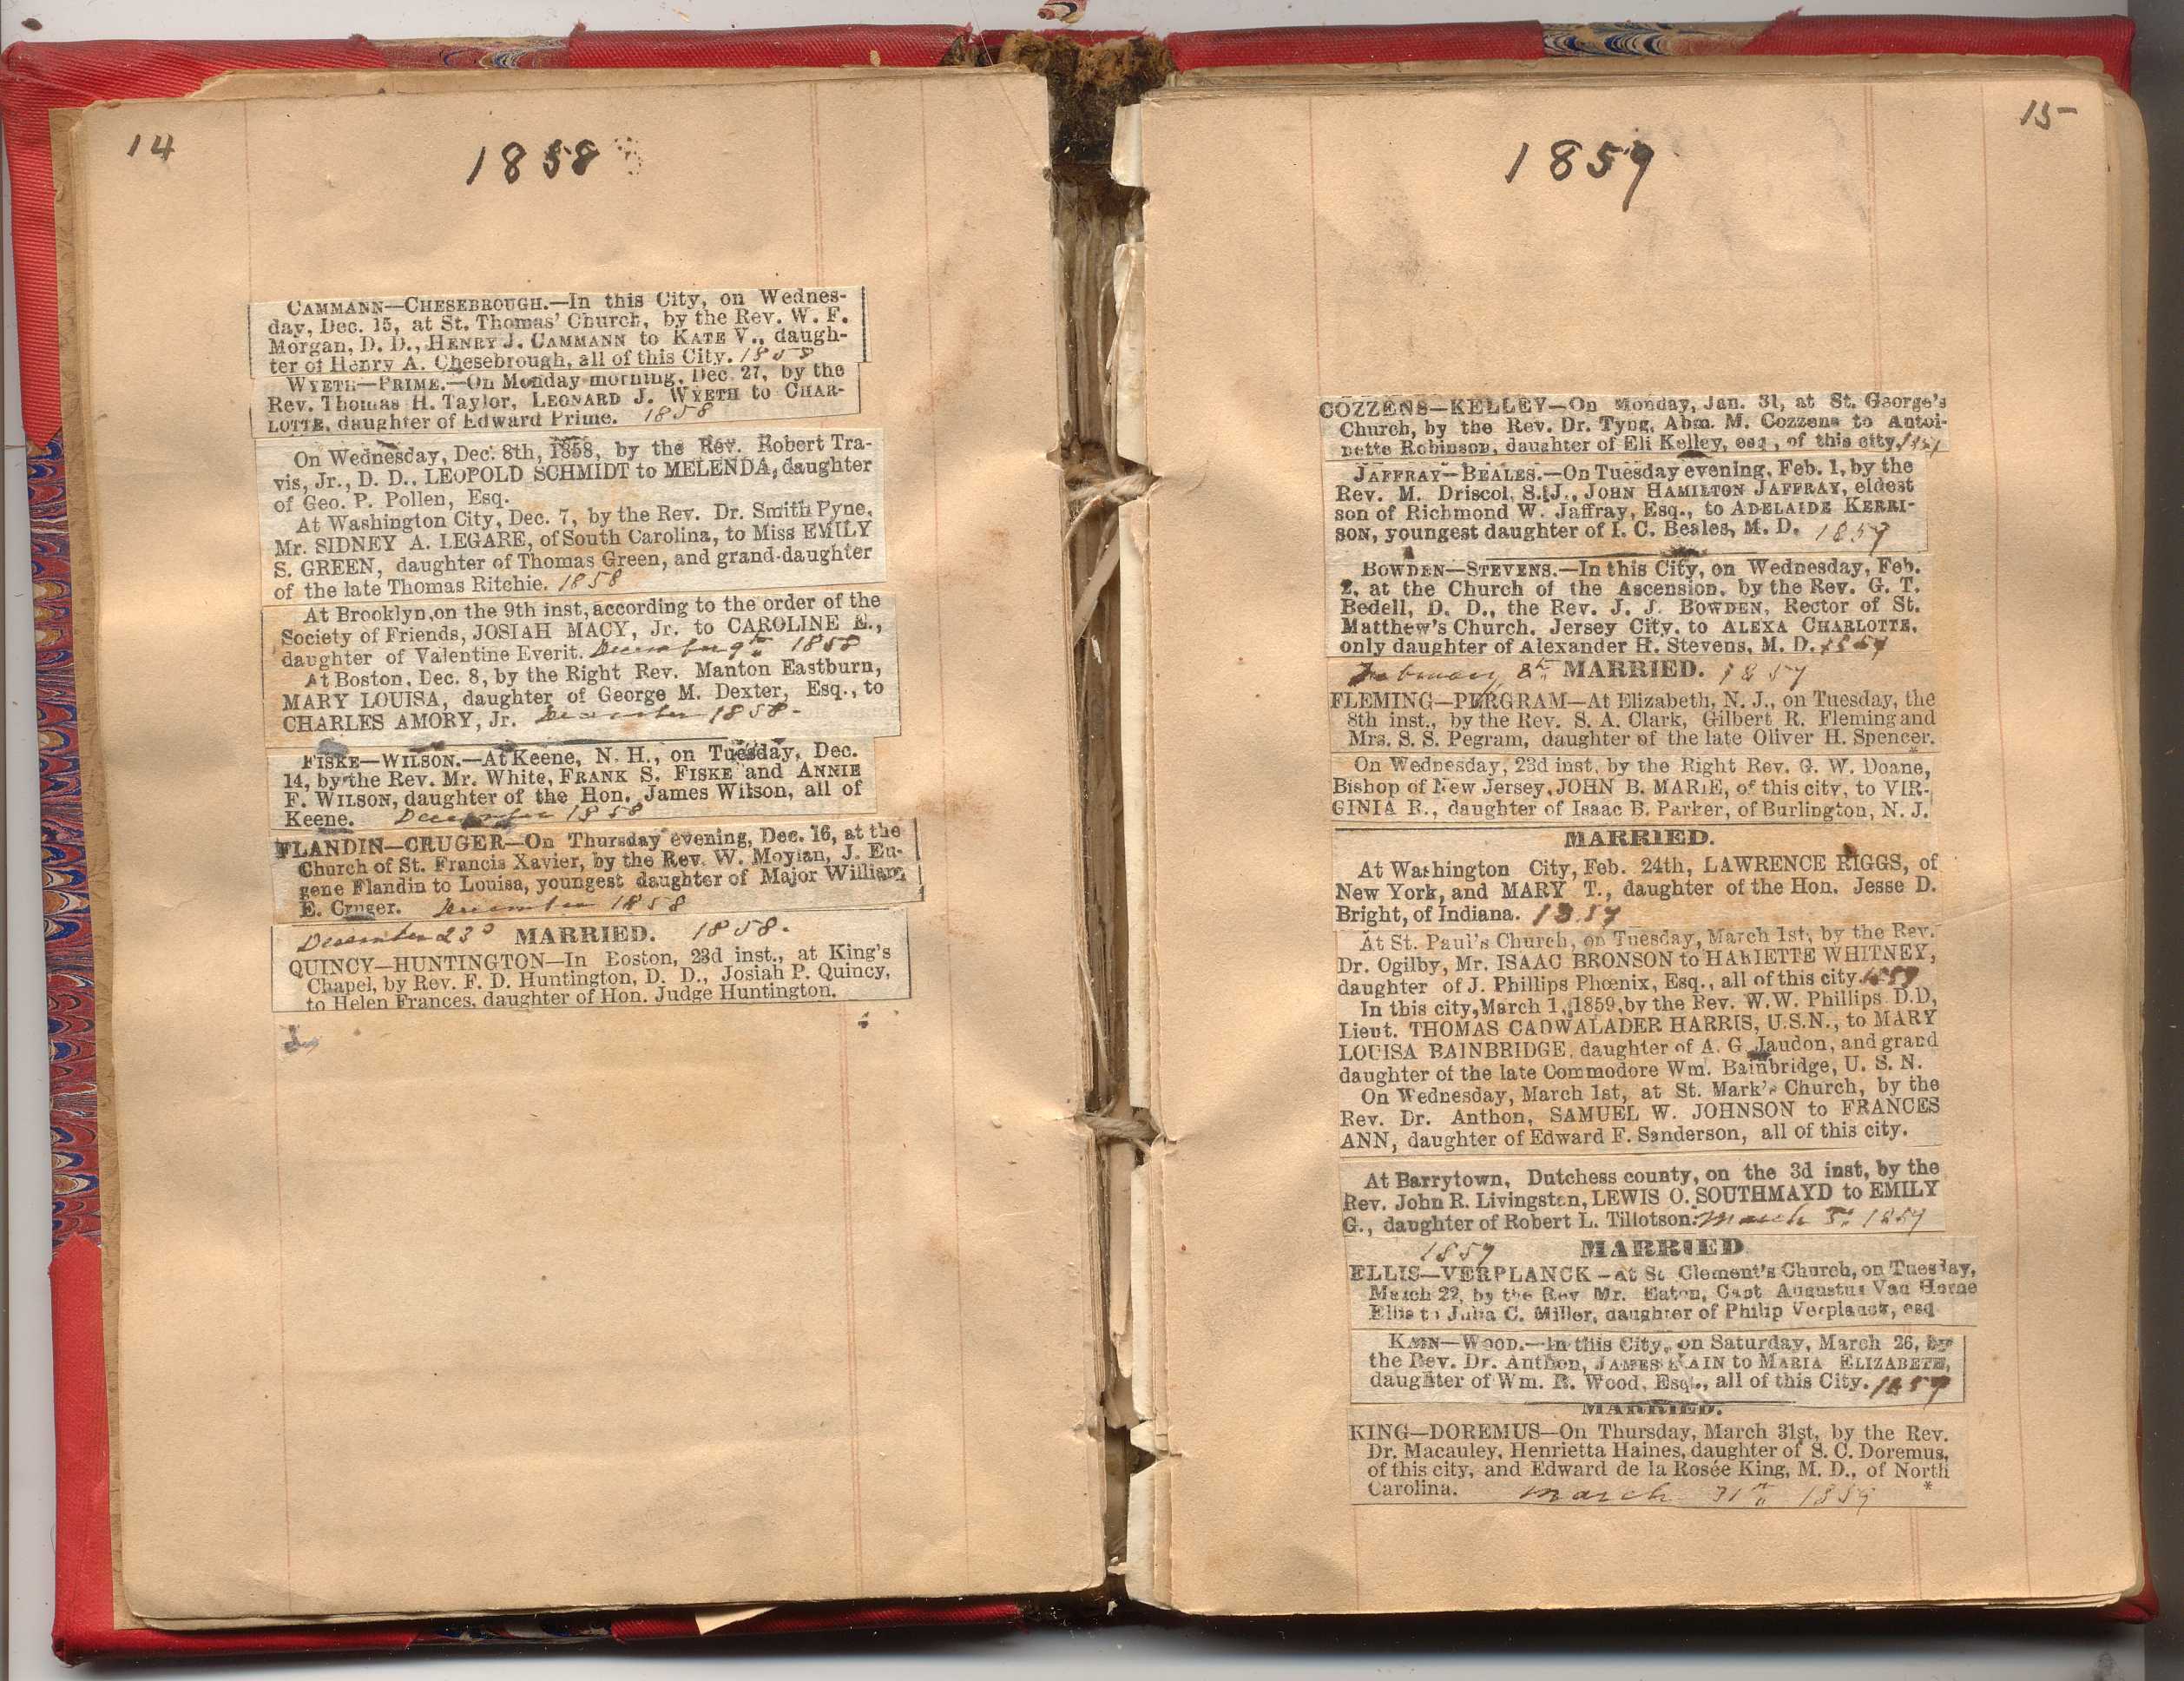 14
1858
CAMMANN—CHESEBROUGH.—In this City, on Wednes-
day, Dec. 15, at St. Thomas' Church, by the Rev. W. F.
Morgan, D. D., HENRY J. CAMMANN to KATE V., daugh-
ter of Henry A. Chesebrough, all of this City. 1858
WYETH—PRIME.—On Monday morning, Dec. 27, by the
Rev. Thomas H. Taylor, LEONARD J. WYETH to CHAR-
LOTTE, daughter of Edward Prime. 1858
On Wednesday, Dec. 8th, 1858, by the Rev. Robert Tra-
vis, Jr., D. D., LEOPOLD SCHMIDT to MELENDA, daughter
of Geo. P. Pollen, Esq.
At Washington City, Dec. 7, by the Rev. Dr. Smith Pyne,
Mr. SIDNEY A. LEGARE, of South Carolina, to Miss EMILY
S. GREEN, daughter of Thomas Green, and grand-daughter
of the late Thomas Ritchie. 1858
At Brooklyn, on the 9th inst, according to the order of the
Society of Friends, JOSIAH MACY, Jr. to CAROLINE E.,
daughter of Valentine Everit. December 9th 1858
At Boston, Dec. 8, by the Right Rev. Manton Eastburn,
MARY LOUISA, daughter of George M. Dexter, Esq., to
CHARLES AMORY, Jr. December 1858-
FISKE—WILSON.—At Keene, N. H., on Tuesday, Dec.
14, by the Rev. Mr. White, FRANK S. FISKE and ANNIE
F. WILSON, daughter of the Hon. James Wilson, all of
Keene. December 1858
FLANDIN—CRUGER—On Thursday evening, Dec. 16, at the
Church of St. Francis Xavier, by the Rev. W. Moylan, J. Eu-
gene Flandin to Louisa, youngest daughter of Major William
E. Cruger. December 1858
December 23d MARRIED. 1858.
QUINCY—HUNTINGTON—In Boston, 23d inst., at King's
Chapel, by Rev. F. D. Huntington, D. D., Josiah P. Quincy,
to Helen Frances, daughter of Hon. Judge Huntington.
15
1859
COZZENS—KELLEY—On Monday, Jan. 31, at St. George's
Church, by the Rev. Dr. Tyng, Abm. M. Cozzens to Antoi-
nette Robinson, daughter of Eli Kelley, esq, of this city.
JAFFRAY—BEALES.—On Tuesday evening, Feb. 1, by the
Rev. M. Driscol, S. J., JOHN HAMILTON JAFFRAY, eldest
son of Richmond W. Jaffray, Esq., to ADELAIDE KERRI-
SON, youngest daughter of I. C. Beales, M. D. 1859
BOWDEN—STEVENS.—In this City, on Wednesday, Feb.
2, at the Church of the Ascension, by the Rev. G. T.
Bedell, D. D., the Rev. J. J. BOWDEN, Rector of St.
Matthew's Church, Jersey City, to ALEXA CHARLOTTE,
only daughter of Alexander H. Stevens, M. D. 1859
February 8th MARRIED. 1859
FLEMING—PERGRAM—At Elizabeth, N. J., on Tuesday, the
8th inst., by the Rev. S. A. Clark, Gilbert R. Fleming and
Mrs. S. S. Pegram, daughter of the late Oliver H. Spencer. *
On Wednesday, 23d inst, by the Right Rev. G. W. Doane,
Bishop of New Jersey, JOHN B. MARIE, of this city, to VIR-
GINIA R., daughter of Isaac B. Parker, of Burlington, N. J.
MARRIED.
At Washington City, Feb. 24th, LAWRENCE RIGGS, of
New York, and MARY T., daughter of the Hon. Jesse D.
Bright, of Indiana. 1859
At St. Paul's Church, on Tuesday, March 1st, by the Rev.
Dr. Ogilby, Mr. ISAAC BRONSON to HARIETTE WHITNEY,
daughter of J. Phillips Phœnix, Esq., all of this city. 1859
In this city, March 1, 1859, by the Rev. W. W. Phillips D.D,
Lieut. THOMAS CADWALADER HARRIS, U.S.N., to MARY
LOUISA BAINBRIDGE, daughter of A. G. Jaudon, and grand
daughter of the late Commodore Wm. Bainbridge, U. S. N.
On Wednesday, March 1st, at St. Mark's Church, by the
Rev. Dr. Anthon, SAMUEL W. JOHNSON to FRANCES
ANN, daughter of Edward F. Sanderson, all of this city.
At Barrytown, Dutchess county, on the 3d inst, by the
Rev. John R. Livingston, LEWIS O. SOUTHMAYD to EMILY
G., daughter of Robert L. Tillotson. March 3d 1859
1859 MARRIED
ELLIS—VERPLANCK—At St Clement's Church, on Tuesday,
March 22, by the Rev Mr. Eaton, Capt Augustus Van Horne
Ellis to Julia C. Miller, daughter of Philip Verplanck, esq
KAIN—WOOD.—In this City, on Saturday, March 26, by
the Rev. Dr. Anthon, JAMES KAIN to MARIA ELIZABETH,
daughter of Wm. R. Wood, Esq., all of this City. 1859
MARRIED.
KING—DOREMUS—On Thursday, March 31st, by the Rev.
Dr. Macauley, Henrietta Haines, daughter of S. C. Doremus,
of this city, and Edward de la Rosée King, M. D., of North
Carolina. March 31st 1859 *